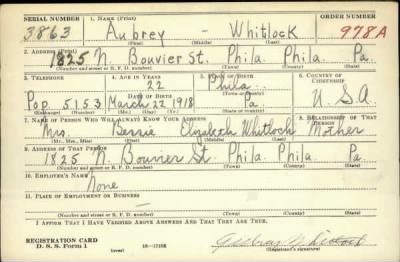 SERIAL NUMBER 1. NAME (Print) ORDER NUMBER
3863 Aubrey - Whitlock 978A
(First) (Middle) (Last)
2. ADDRESS (Print)
1825 N. Bouvier St. Phila. Phila. Pa.
(Number and street or R. F. D. number) (Town) (County) (State)
3. TELEPHONE 4. AGE IN YEARS 5. PLACE OF BIRTH 6. COUNTRY OF CITIZENSHIP
22 Phila.
DATE OF BIRTH (Town or county)
Pop. 5153 March 22 1918 Pa. U.S.A.
(Exchange) (Number) (Mo.) (Day) (Yr.) (State or country)
7. NAME OF PERSON WHO WILL ALWAYS KNOW YOUR ADDRESS 8. RELATIONSHIP OF THAT PERSON
Mrs. Bessie Elizabeth Whitlock Mother
(Mr., Mrs., Miss) (First) (Middle) (Last)
9. ADDRESS OF THAT PERSON
1825 N. Bouvier St. Phila. Phila. Pa.
(Number and street or R. F. D. number) (Town) (County) (State)
10. EMPLOYER'S NAME
None
11. PLACE OF EMPLOYMENT OR BUSINESS
—
(Number and street or R. F. D. number) (Town) (County) (State)
I AFFIRM THAT I HAVE VERIFIED ABOVE ANSWERS AND THAT THEY ARE TRUE.
REGISTRATION CARD
D. S. S. Form 1 (over) 16—17105 (Registrant's signature)